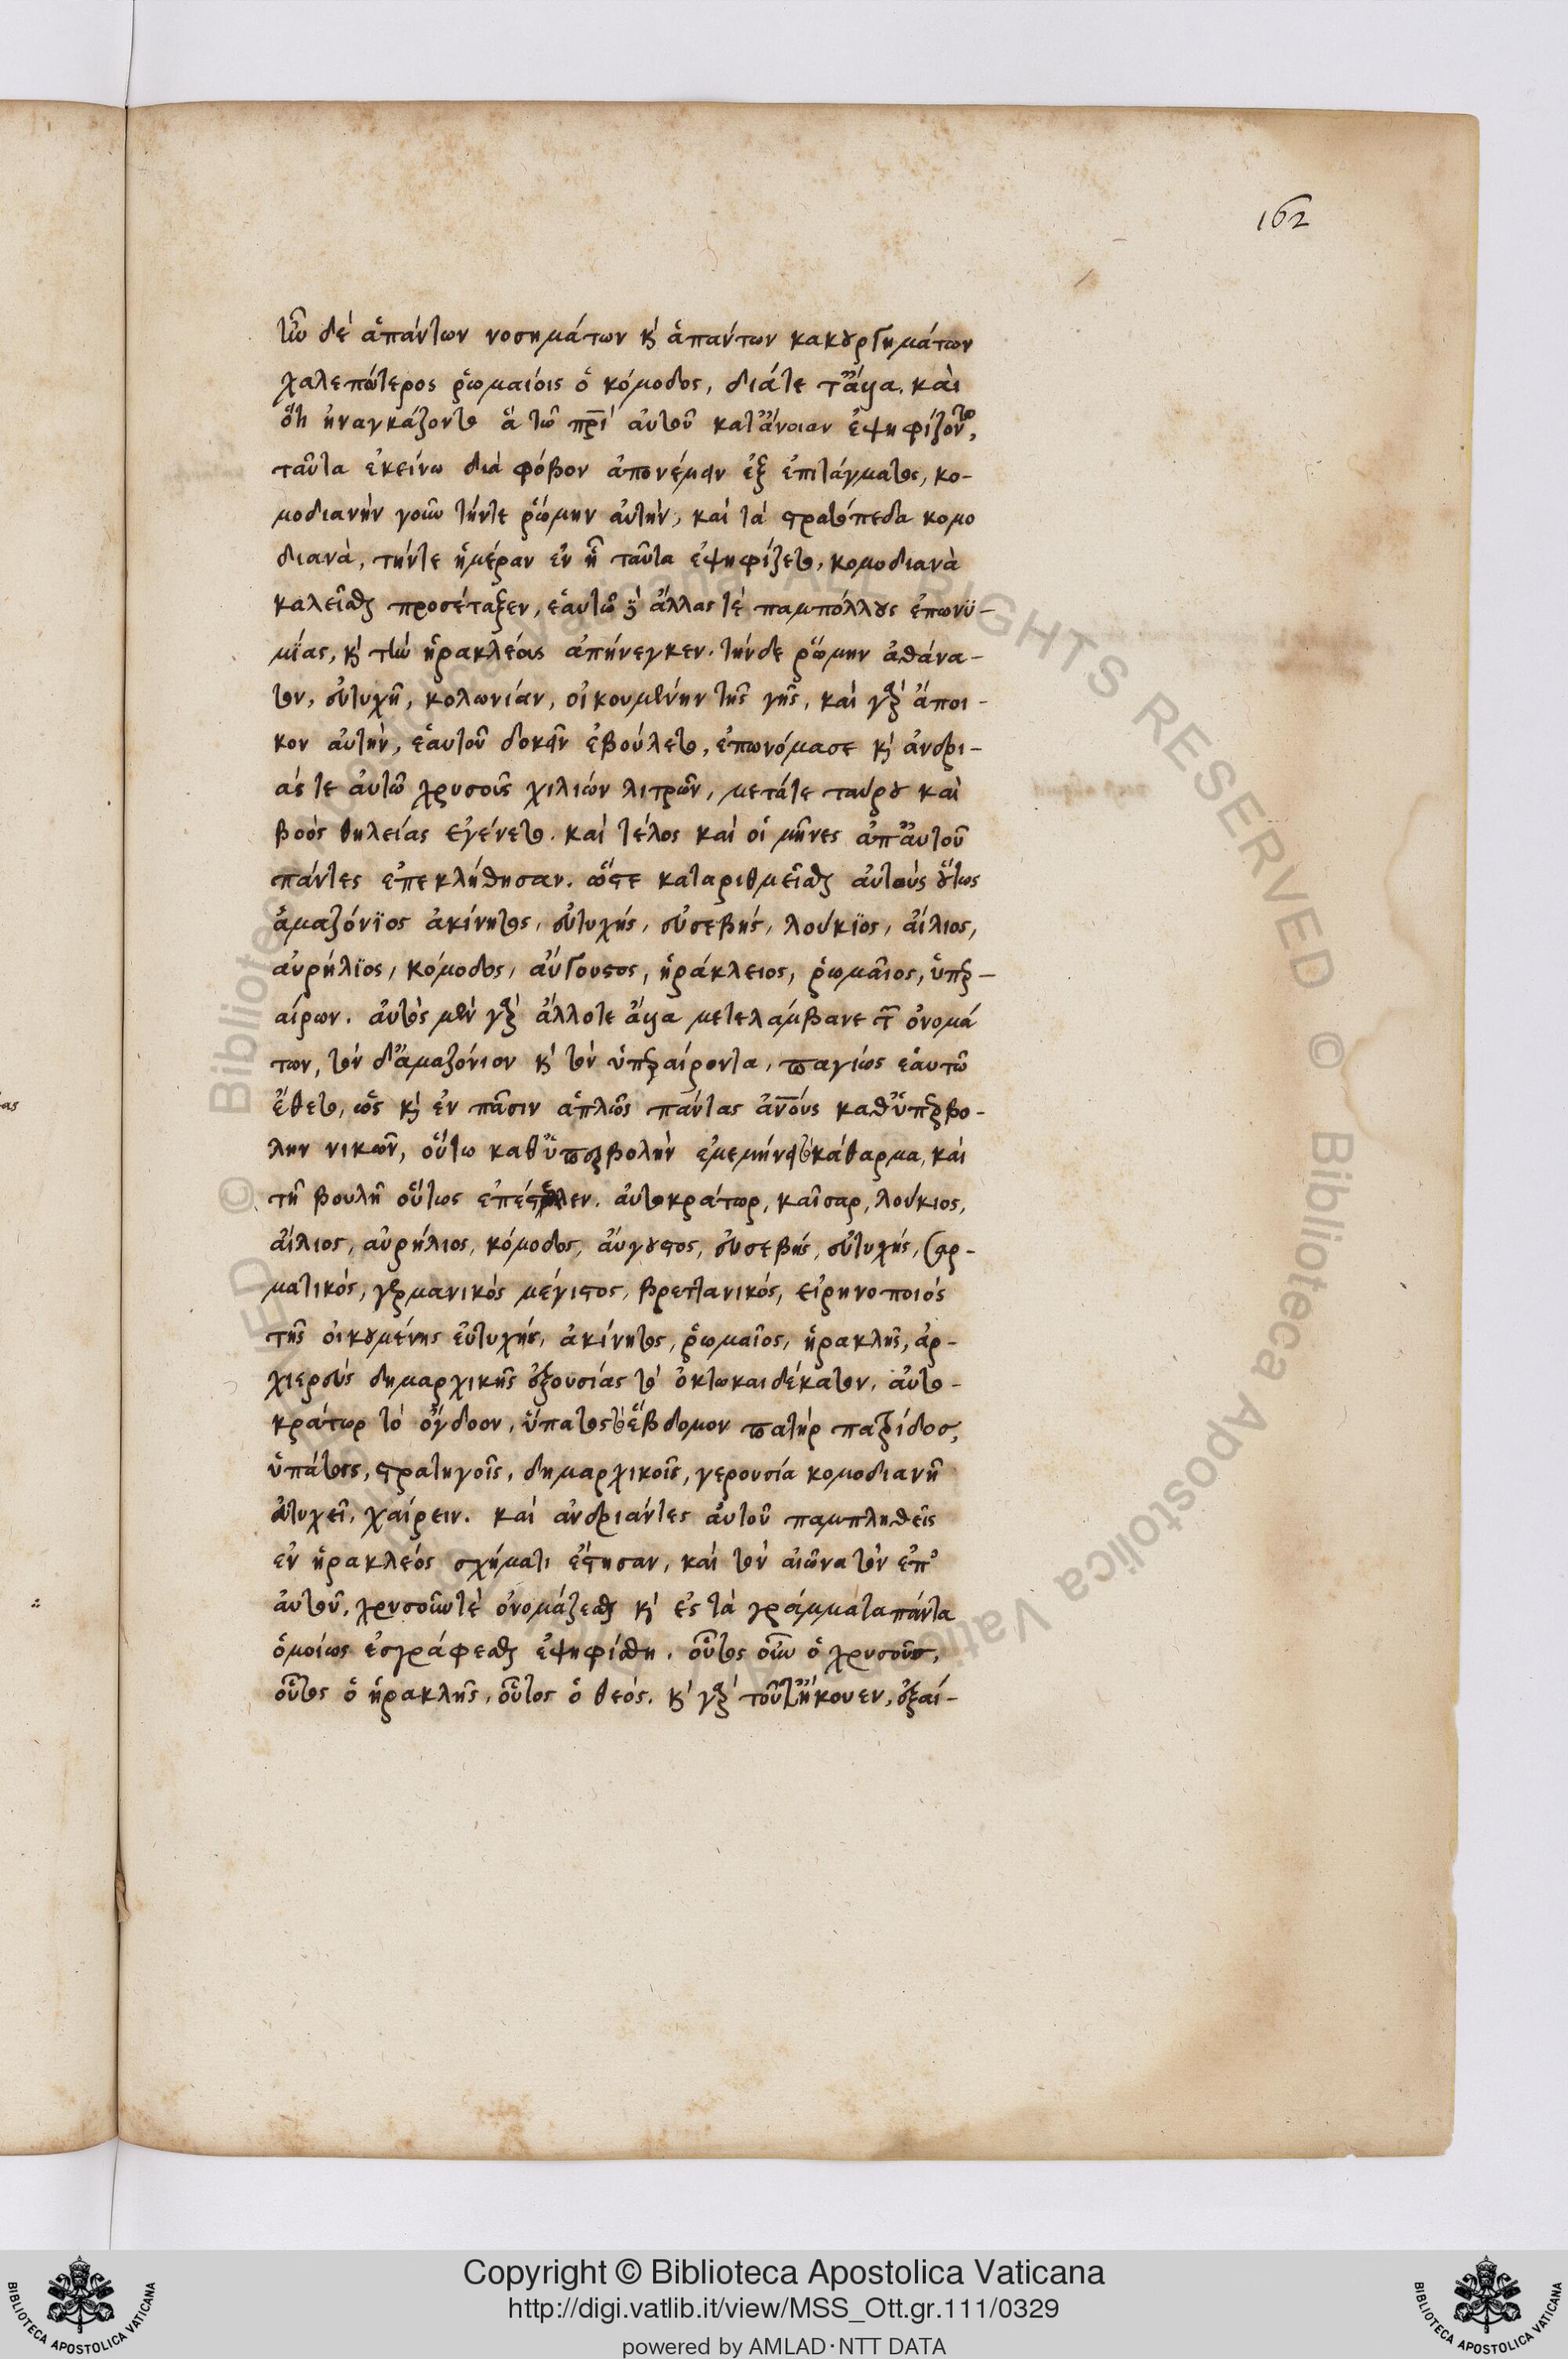 162
ἦν δὲ ἁπάντων νοσημάτων κ̀ ἁπάντων κακουργημάτων
χαλεπώτερος ῥωμαίοις ὁ κόμοδος, διά τε τἄλλα. καὶ
ὅτι ἠναγκάζοντο ἃ τῶ πρὶ αὐτοῦ κατ' ἄνοιαν ἐψηφίζοντο,
ταῦτα ἐκείνω διὰ φόβον ἀπονέμειν ἐξ ἐπιτάγματος, κο-
μοδιανὴν γοῦν τήν τε ῥώμην αὐτὴν, καὶ τὰ στρατόπεδα κομο
διανὰ, τήν τε ἡμέραν ἐν ἧ ταῦτα ἐψηφίζετο, κομοδιανὰ
καλεῖσθαι προσέταξεν, ἑαυτῶ δὲ ἄλλας τὲ παμπόλλους ἐπωνϋ-
μίας, κ̀ τὴν ἡρακλέους ἀπήνεγκεν. τήνδε ῥώμην ἀθάνα-
τον, εὐτυχῆ, κολωνίαν, οἰκουμένην τῆς γῆς, καὶ γὰρ ἄποι-
κον αὐτὴν, ἑαυτοῦ δοκεῖν ἐβούλετο, ἐπωνόμασε κ̀ ἀνδρι-
άς τε αὐτῶ χρυσοῦς χιλίων λιτρῶν, μετά τε ταύρου καὶ
βοὸς θηλείας ἐγένετο. καὶ τέλος καὶ οἱ μῆνες ἀπ' αὐτοῦ
πάντες ἐπεκλήθησαν. ὥστε καταριθμεῖσθαι αὐτοὺς οὕτως
ἀμαζόνϊος ἀκίνητος, εὐτυχής, εὐσεβής, λούκϊος, αἴλιος,
αὐρήλϊος, κόμοδος, αὔγουστος, ἡράκλειος, ῥωμαῖος, ὑπερ-
αίρων. αὐτὸς μὲν γὰρ ἄλλοτε ἄλλα μετελάμβανε τῶν ὀνομά
των, τὸν δ' ἀμαζόνιον κ̀ τὸν ὑπεραίροντα, παγίως ἑαυτῶ
ἔθετο, ὡς κ̀ ἐν πᾶσιν ἁπλῶς πάντας ἀνους καθ' ὑπερβο-
λὴν νικῶν, οὕτω καθ' ὑπερβολὴν ἐμεμήνει τὸ κάθαρμα, καὶ
τῆ βουλῆ οὕτως ἐπέστειλεν. αὐτοκράτωρ, καῖσαρ, λούκιος,
αἴλιος, αὐρήλιος, κόμοδος, αὔγουστος, εὐσεβής, εὐτυχής, σαρ-
ματικός, γερμανικός μέγιστος, βρεττανικός, εἰρηνοποιός
τῆς οἰκουμένης εὐτυχής, ἀκίνητος, ῥωμαῖος, ἡρακλῆς, ἀρ-
χιερεύς δημαρχικῆς ἐξουσίας τὸ ὀκτωκαιδέκατον, αὐτο-
κράτωρ τὸ ὄγδοον, ὕπατος τὸ ἕβδομον πατὴρ πατρίδος,
ὑπάτοις, στρατηγοῖς, δημαρχικοῖς, γερουσία κομοδιανῆ
εὐτυχεῖ, χαίρειν. καὶ ἀνδριάντες αὐτοῦ παμπληθεῖς
ἐν ἡρακλέος σχήματι ἔστησαν, καὶ τὸν αἰῶνα τὸν ἐπ'
αὐτοῦ, χρυσοῦν τὲ ὀνομάζεσθαι κ̀ ἐς τὰ γράμματα πάντα
ὁμοίως ἐσγράφεσθαι ἐψηφίσθη. οὗτος οὖν ὁ χρυσοῦς,
οὗτος ὁ ἡρακλῆς, οὗτος ὁ θεός. κ̀ γὰρ τοῦτ' ἤκουεν, ἐξαί-
Copyright © Biblioteca Apostolica Vaticana
http://digi.vatlib.it/view/MSS_Ott.gr.111/0329
powered by AMLAD·NTT DATA